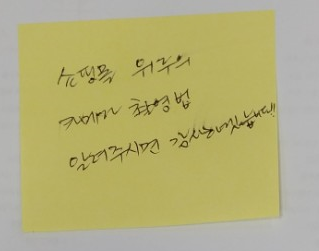 쇼핑몰 위주의
카메라 촬영법
알려주시면 감사하겠습니다!!